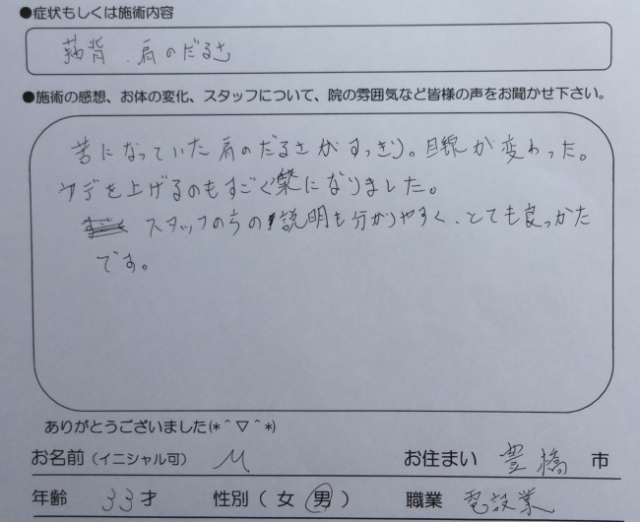 ●症状もしくは施術内容
猫背、肩のだるさ
●施術の感想、お体の変化、スタッフについて、院の雰囲気など皆様の声をお聞かせ下さい。
苦になっていた肩のだるさがすっきり。目線が変わった。
ウデを上げるのもすごく楽になりました。
スタッフのちの説明も分かりやすく、とても良かった
です。
ありがとうございました(*＾▽＾*)
お名前（イニシャル可） M お住まい 豊橋 市
年齢 33才 性別（ 女 男 ） 職業 電設業